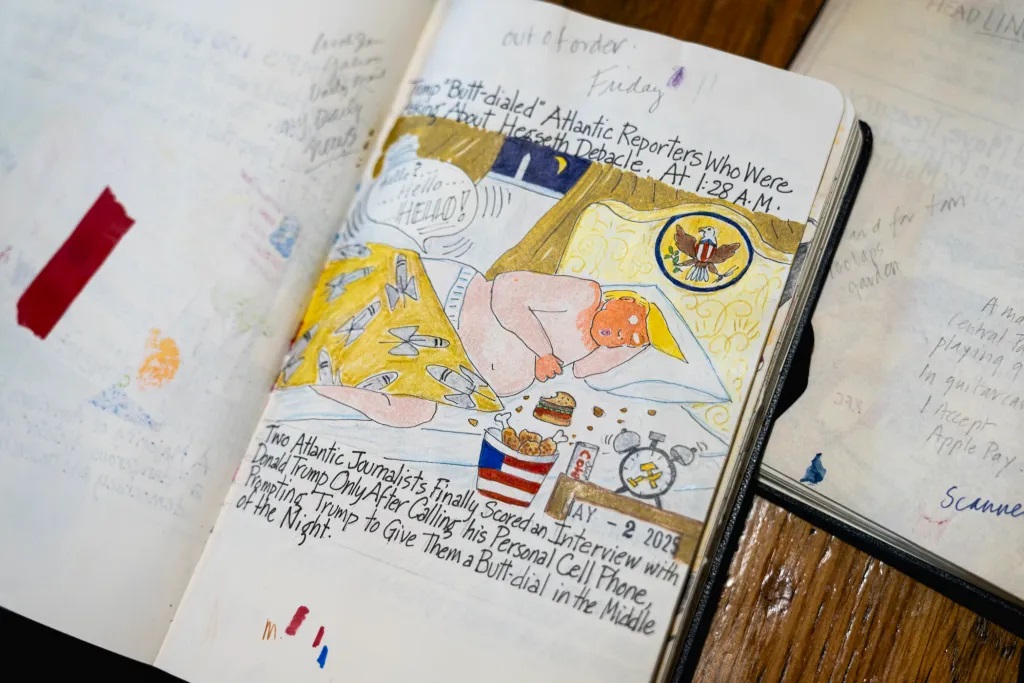 out of order.
Friday !!
Trump "Butt-dialed" Atlantic Reporters Who Were
Talking About Hegseth Debacle. At 1:28 A.M.
Hello...
Hello...
HELLO!
MAY - 2 2025
Two Atlantic Journalists Finally Scored an Interview with
Donald Trump Only After Calling his Personal Cell Phone,
Prompting Trump to Give Them a Butt-dial in the Middle
of the Night.
m.
HEADLIN
and far
A ma
Central
playing g
In guitar ca
I Accept
Apple Pay.
Scanne